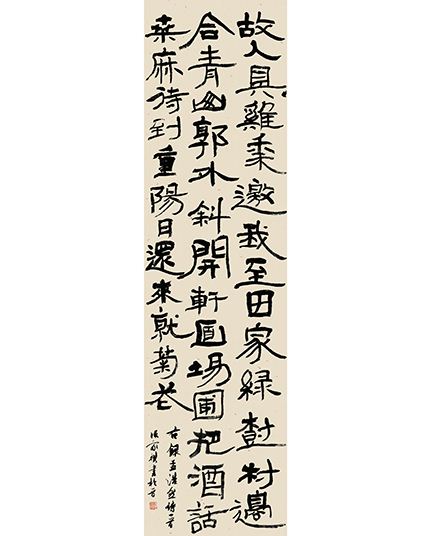 故人具雞黍邀我至田家緑樹村邊
合青山郭外斜開軒面場圃把酒話
桒麻待到重陽日還來就菊花
右録孟浩然詩一首
書於